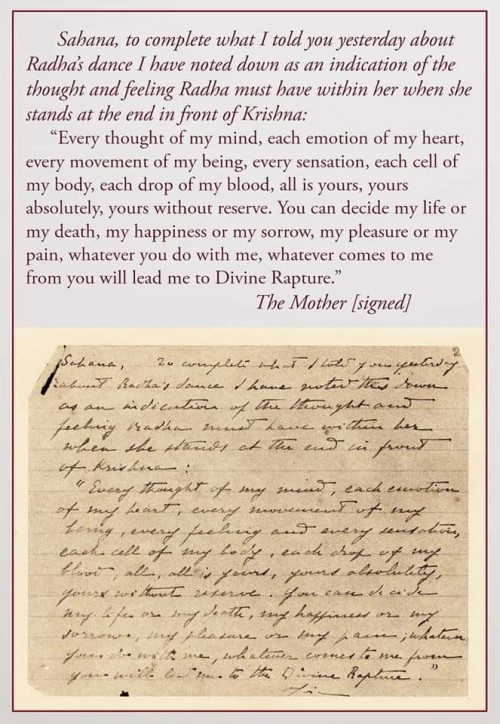 Sahana, to complete what I told you yesterday about
Radha's dance I have noted down as an indication of the
thought and feeling Radha must have within her when she
stands at the end in front of Krishna:
“Every thought of my mind, each emotion of my heart,
every movement of my being, every sensation, each cell of
my body, each drop of my blood, all is yours, yours
absolutely, yours without reserve. You can decide my life or
my death, my happiness or my sorrow, my pleasure or my
pain, whatever you do with me, whatever comes to me
from you will lead me to Divine Rapture.”
The Mother [signed]
2
Sahana, To complete what I told you yesterday
about Radha's dance I have noted this down
as an indication of the thought and
feeling Radha must have within her
when she stands at the end in front
of Krishna :
“Every thought of my mind, each emotion
of my heart, every movement of my
being, every feeling and every sensation,
each cell of my body, each drop of my
blood, all, all is yours, yours absolutely,
yours without reserve. You can decide
my life or my death, my happiness or my
sorrow, my pleasure or my pain; whatever
you do with me, whatever comes to me from
you will lead me to the Divine Rapture.”